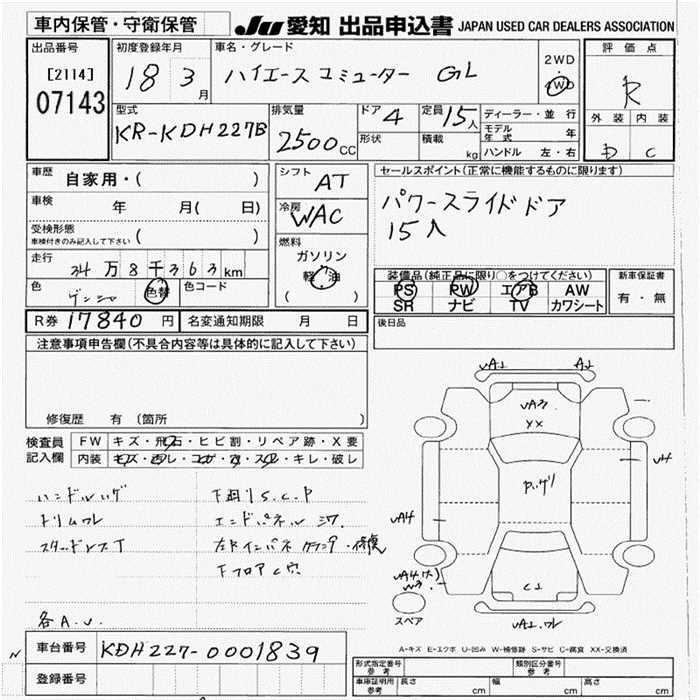 車内保管・守衛保管
JU 愛知 出品申込書 JAPAN USED CAR DEALERS ASSOCIATION
出品番号
[2114]
07143
初度登録年月
18 3月
車名・グレード
ハイエースコミューター GL
2WD
4WD
評価点
R
外装 内装
D C
型式
KR-KDH227B
排気量
2500cc
ドア 4
定員 15人
形状
積載 kg
ディーラー・並行
モデル年式 年
ハンドル 左・右
車歴 自家用・( )
車検 年 月( 日)
受検形態
車検付きのみ記入して下さい ( )
走行
34万8千363km
色 色替 色コード
シフト AT
冷房 WAC
燃料
ガソリン
軽油
( )
セールスポイント(正常に機能するものに限ります)
パワースライドドア
15人
装備品(純正品に限り○をつけてください)
PS PW エアB AW
SR ナビ TV カワシート
新車保証書
有・無
R券 17840円 名変通知期限 月 日
後日品
注意事項申告欄(不具合内容等は具体的に記入して下さい)
修復歴 有 〔箇所 〕
検査員記入欄
FW キズ・飛石・ヒビ割・リペア跡・X要
内装 キズ・汚レ・コゲ・穴・スレ・キレ・破レ
ハンドルハゲ
下廻りS.C.P
トリムワレ
エンドパネル
スタッドレスT
左Fインパネ ・修復
下フロアC穴
各A.U.
UA1 A1
UA3
XX
U4
UA4
C1
スペア
A-キズ E-エクボ U-凹み W-補修跡 S-サビ C-腐食 XX-交換済
車台番号 KDH227-0001839
登録番号
形式指定番号
参考
類別区分番号
参考
車庫証明用
参考
長さ cm 幅 cm 高さ cm